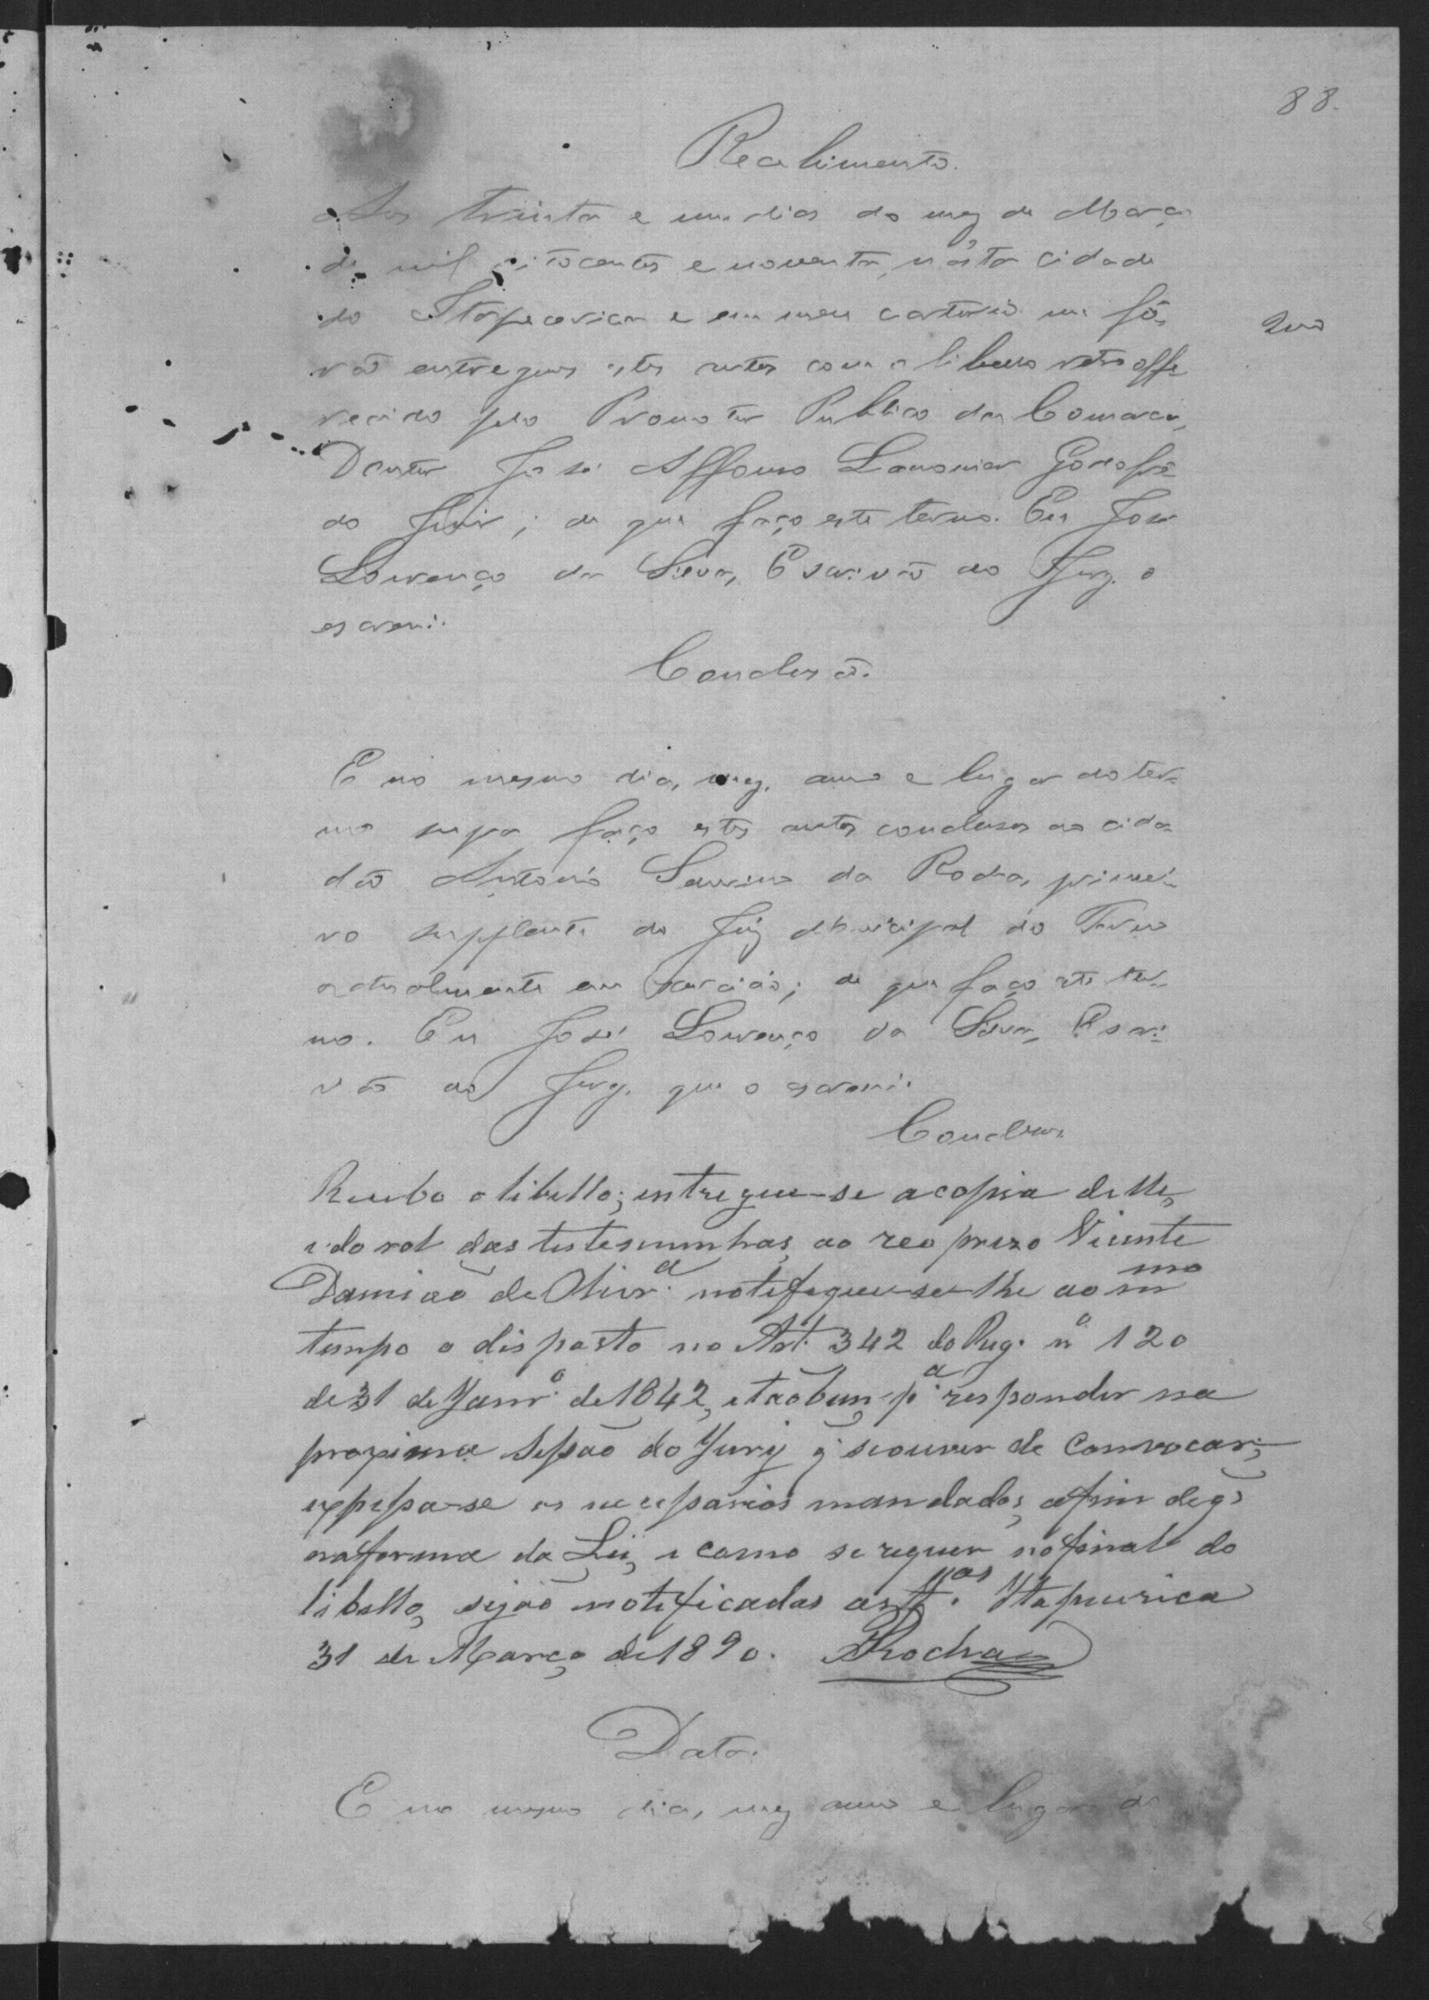 88.
Recebimento.
Aos trinta e um dias do mez de Março
de mil oitocentos e noventa, nésta cidade
do Itapecerica e em meu cartorio me fo-
rão entregues estes autos com o libello retro offe-
recido pelo Promotor Publico da Comarca,
Doutor José Affonso Lamounier Godofre-
do
; de que faço este termo. Eu José
Lourenço da Silva, Escrivão do Jury. o
escrevi.
Conclusão.
E no mesmo dia, mez, anno e lugar do ter-
mo supra faço estes autos conclusos ao cida-
dão Antonio Severino da Rocha, primei-
ro supplente do Juiz Municipal do Termo
actualmente em exercicio; de que faço este ter-
mo. Eu José Lourenço da Silva, Escri-
vão do Jury. que o escrevi.
Conclusos
Recebo o libello; entregue-se a copia delle,
e do rol das testesmunhas, ao reo prezo Vicente
Damião de Olivrª. notifique-se-lhe ao mmo
tempo o disposto no Art. 342 do Reg. nº 120
de 31 de Janrº. de 1842, e tãobem pª. responder na
proxima Sessão do Jury q̃ se ouver de convocar;
expessa-se os necessarios mandados, afim de q̃
na forma da Lei, e como se requer no final do
libello, sejão notificadas as ttas. Itapecerica
31 de Março de 1890. Rocha
Data.
E no mesmo dia, mez anno e lugar do